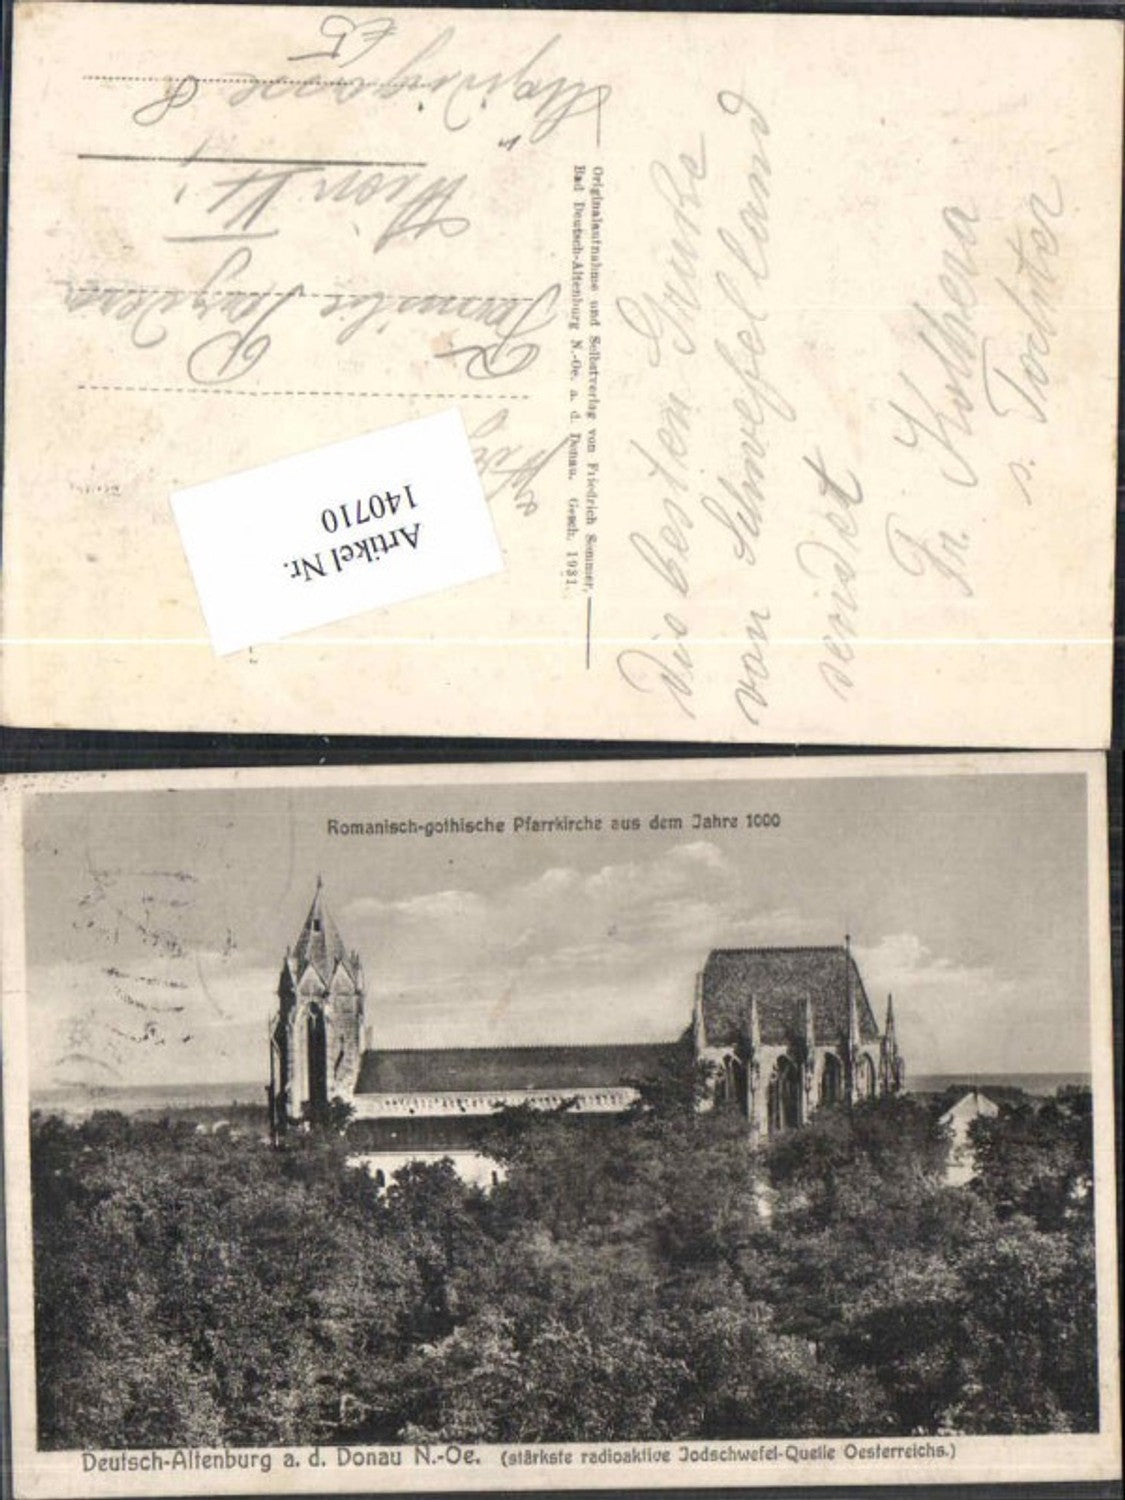 Die besten Grüsse
von Schwefelland
sendet
Fr. Kolhera
s. Tochter
Originalaufnahme und Selbstverlag von Friedrich Sommer,
Bad Deutsch-Altenburg N.-Oe. a. d. Donau. Gesch. 1931.
Familie
Wien VI
8
Artikel Nr.
140710
Romanisch-gothische Pfarrkirche aus dem Jahre 1000
Deutsch-Altenburg a. d. Donau N.-Oe. (stärkste radioaktive Jodschwefel-Quelle Oesterreichs.)